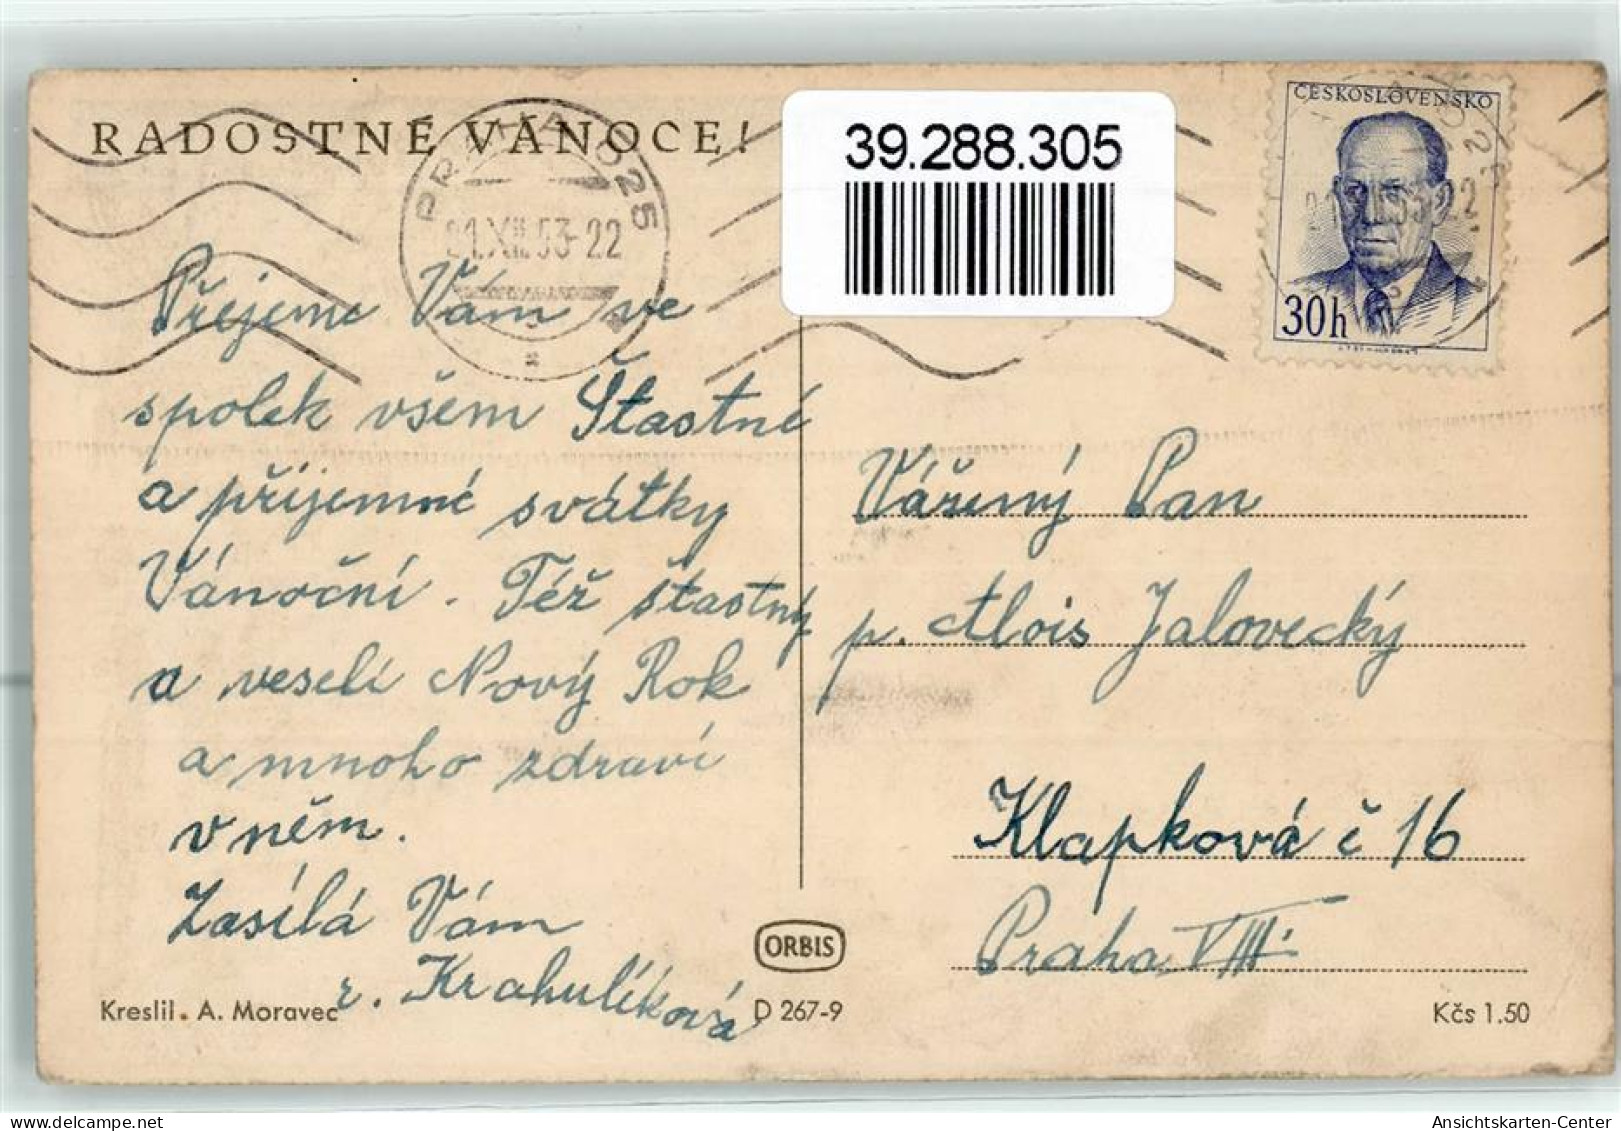 RADOSTNÉ VÁNOCE!
PRAHA 025
21.XII.53-22
39.288.305
ČESKOSLOVENSKO
30h
Přejeme Vám ve
spolek všem Šťastné
a příjemné svátky
Vánoční. Též šťastný
a veselí Nový Rok
a mnoho zdraví
v něm.
Zasílá Vám
r. Krahulíková
Vážený Pan
p. Alois Jalovecký
Klapková č 16
Praha VIII.
ORBIS
Kreslil. A. Moravec
D 267-9
Kčs 1.50
Ansichtskarten-Center